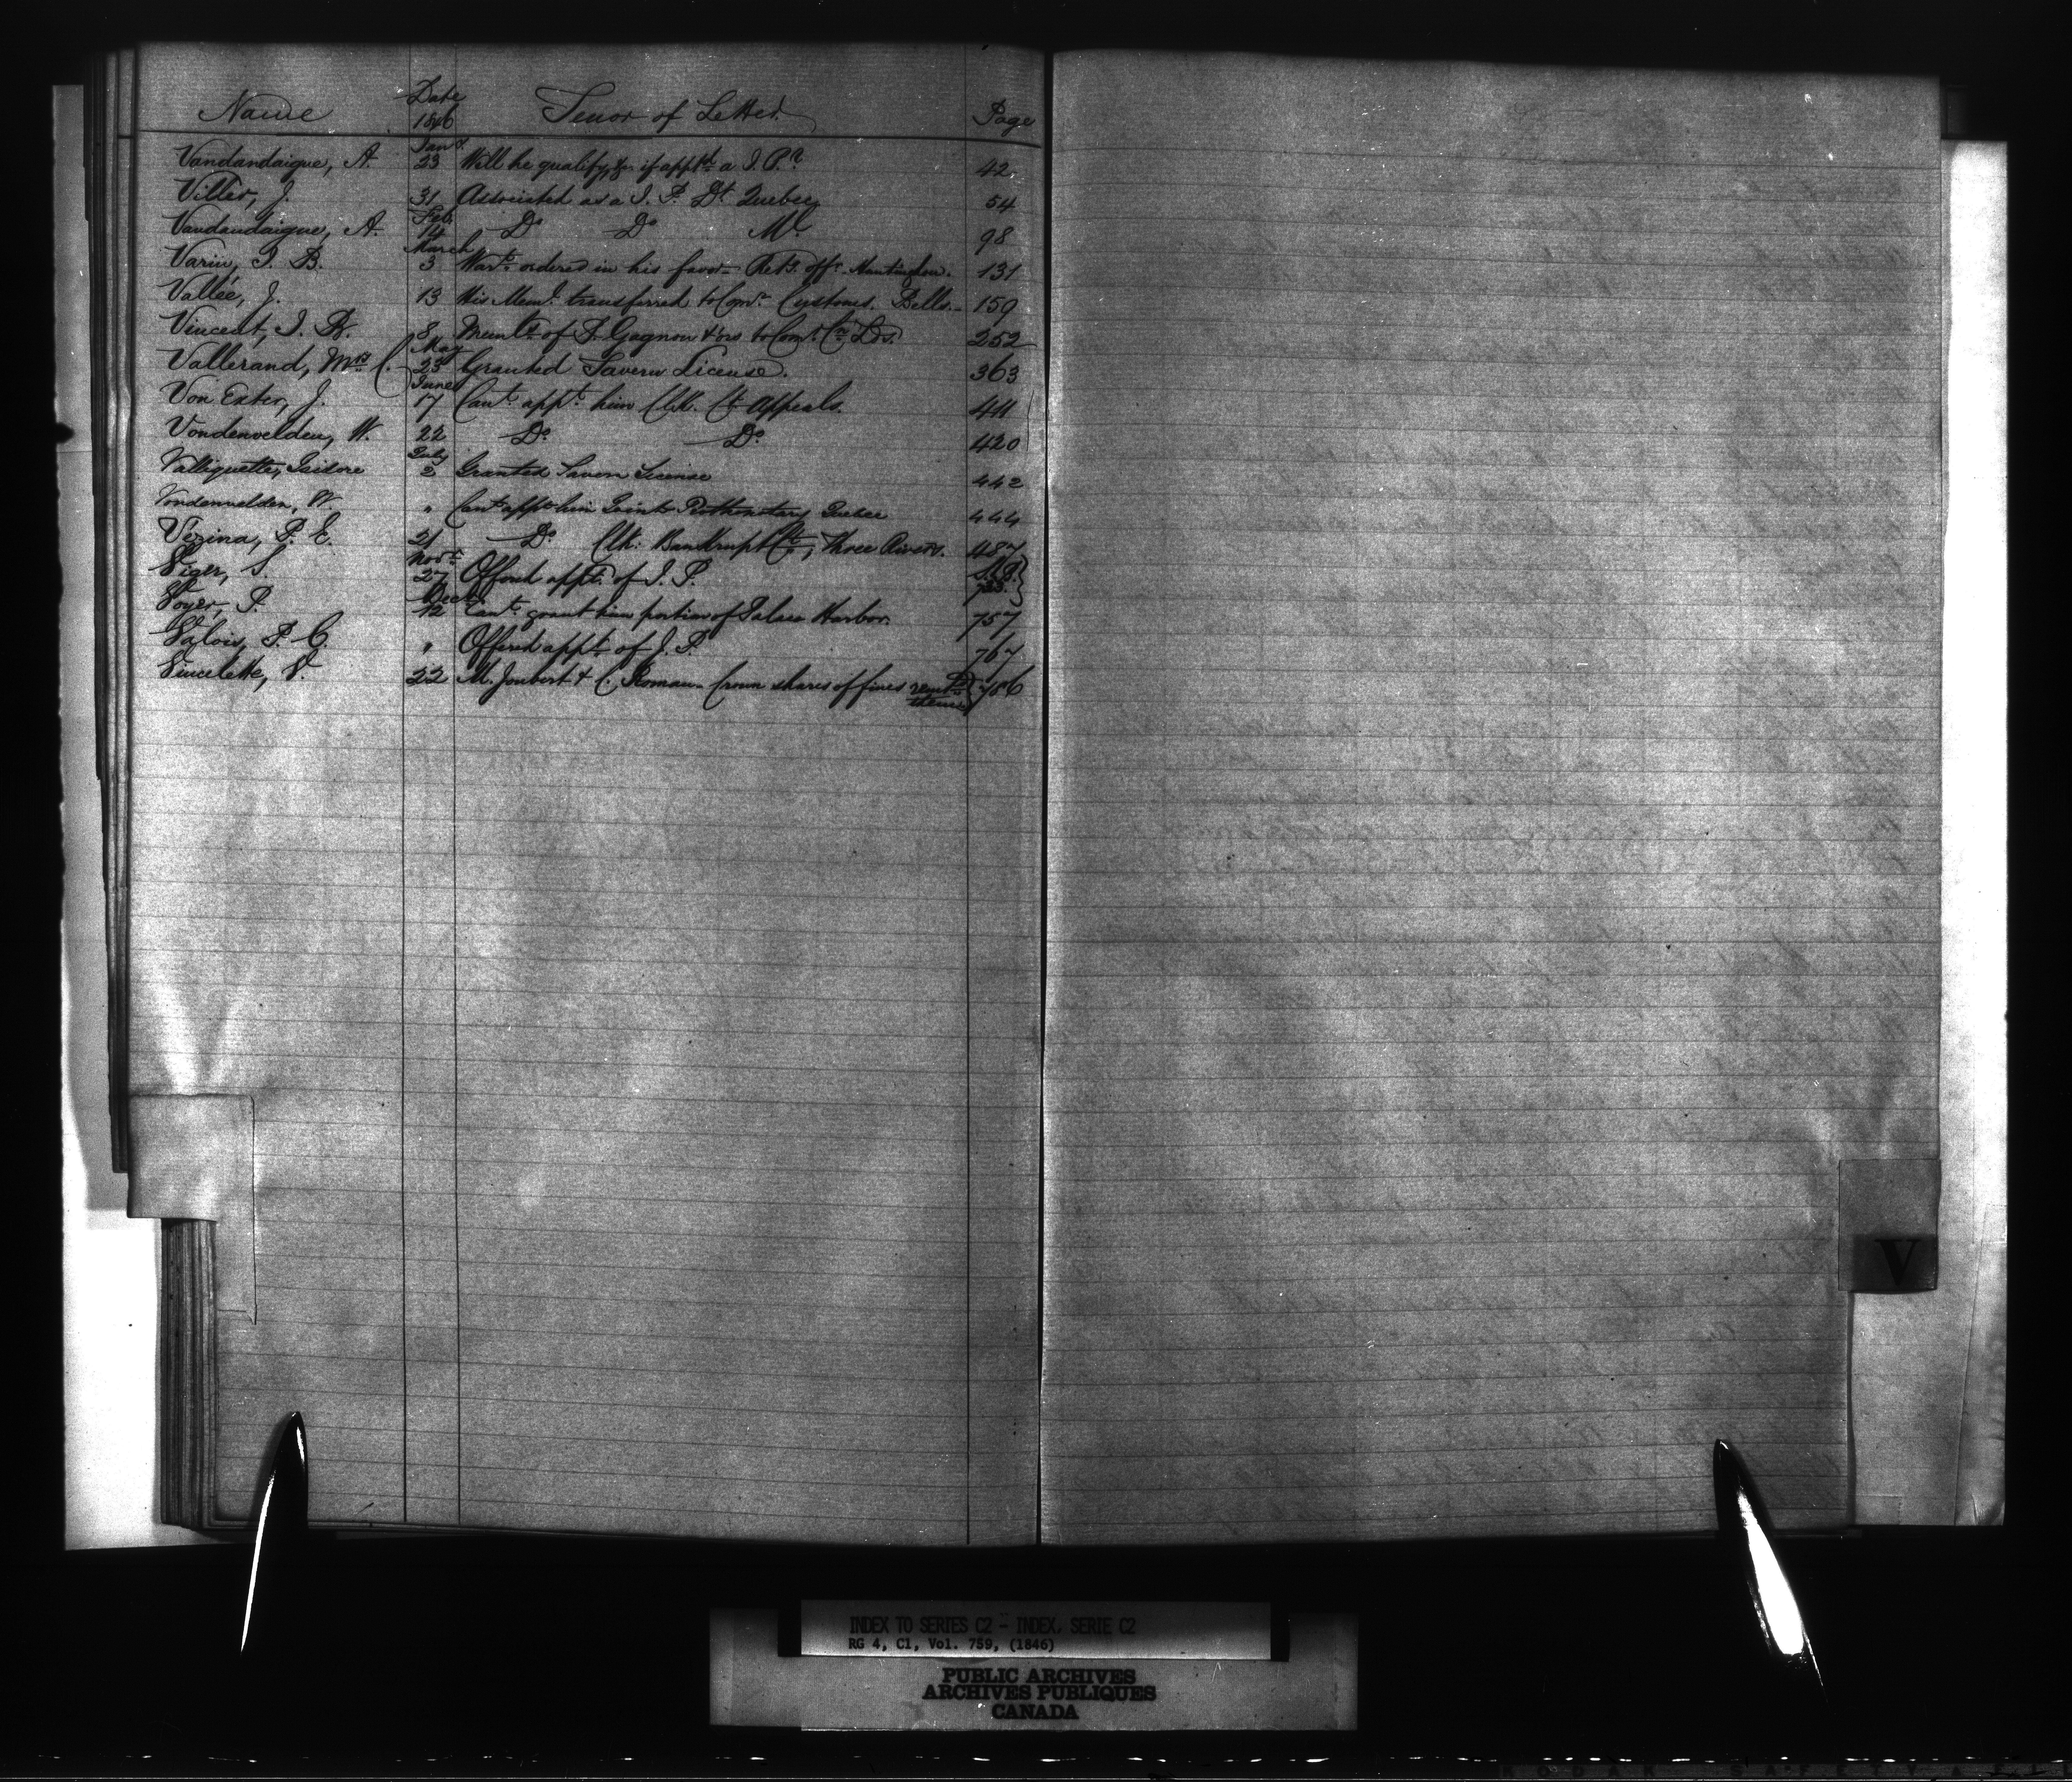 Name Date 1846 Tenor of Letter. Page
Vandandaigue, A. Jany. 23 Will he qualify, &c. if apptd. a J. P.? 42
Villers, J. 31 Associated as a J. P. Dt. Quebec 54
Vandandaigue, A. Feb. 14 Do Do Ml 98
Varin, J. B. March 3 Wart. ordered in his favor - Retg. offr. Huntingdon. 131
Vallée, J. 13 His Meml. transferred to Comr. Customs. Bells. 159
Vincent, J. B. 8 Memls. of F. Gagnon & ors to Comr. Cn Lds. 252
Vallerand, Mrs C. May 23 Granted Tavern License. 363
Von Exter, J. June 17 Cant. appt. him Clk. Ct. Appeals. 411
Vondenvelden, W. 22 Do Do 420
Valliquette, Isidore July 2 Granted Tavern License 442
Vondenvelden, W. " Cant appt him Joint Prothonotary Quebec 444
Vezina, P. E. 21 Do Clk: Bankrupt Ct, Three Rivers. 487
Viger, S. Novr. 27 Offered appt. of J. P. 733
Voyer, P. Decr 12 Cant. grant him portion of Palace Harbor. 757
Valois, P. C. " Offered appt. of J. P. 767
Vincelette, V. 22 M. Joubert & C. Roman - Crown shares of fines remtd. 786
them
V
INDEX TO SERIES C2 - INDEX, SERIE C2
RG 4, C1, Vol. 759, (1846)
PUBLIC ARCHIVES
ARCHIVES PUBLIQUES
CANADA
KODAK SAFETY